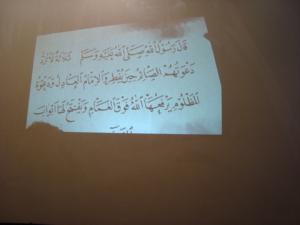 قال رسول الله صلى الله عليه وسلم ثلاثة لا ترد
دعوتهم الصائم حين يفطر والإمام العادل ودعوة
المظلوم يرفعها الله فوق الغمام ويفتح لها أبواب